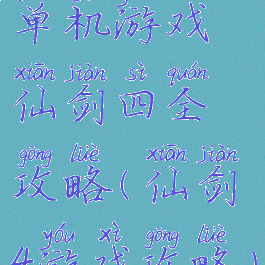 单机游戏
xiān jiàn sì quán
仙剑四全
gōng lüè xiān jiàn
攻略(仙剑
yóu xì gōng lüè
4游戏攻略)